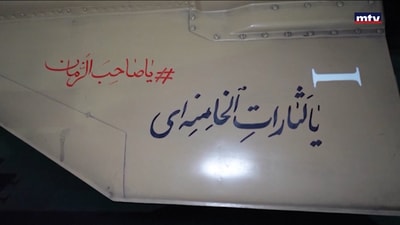 mtv
#یا صاحبَ الزّمان
یا لَثاراتِ الخامنه ای